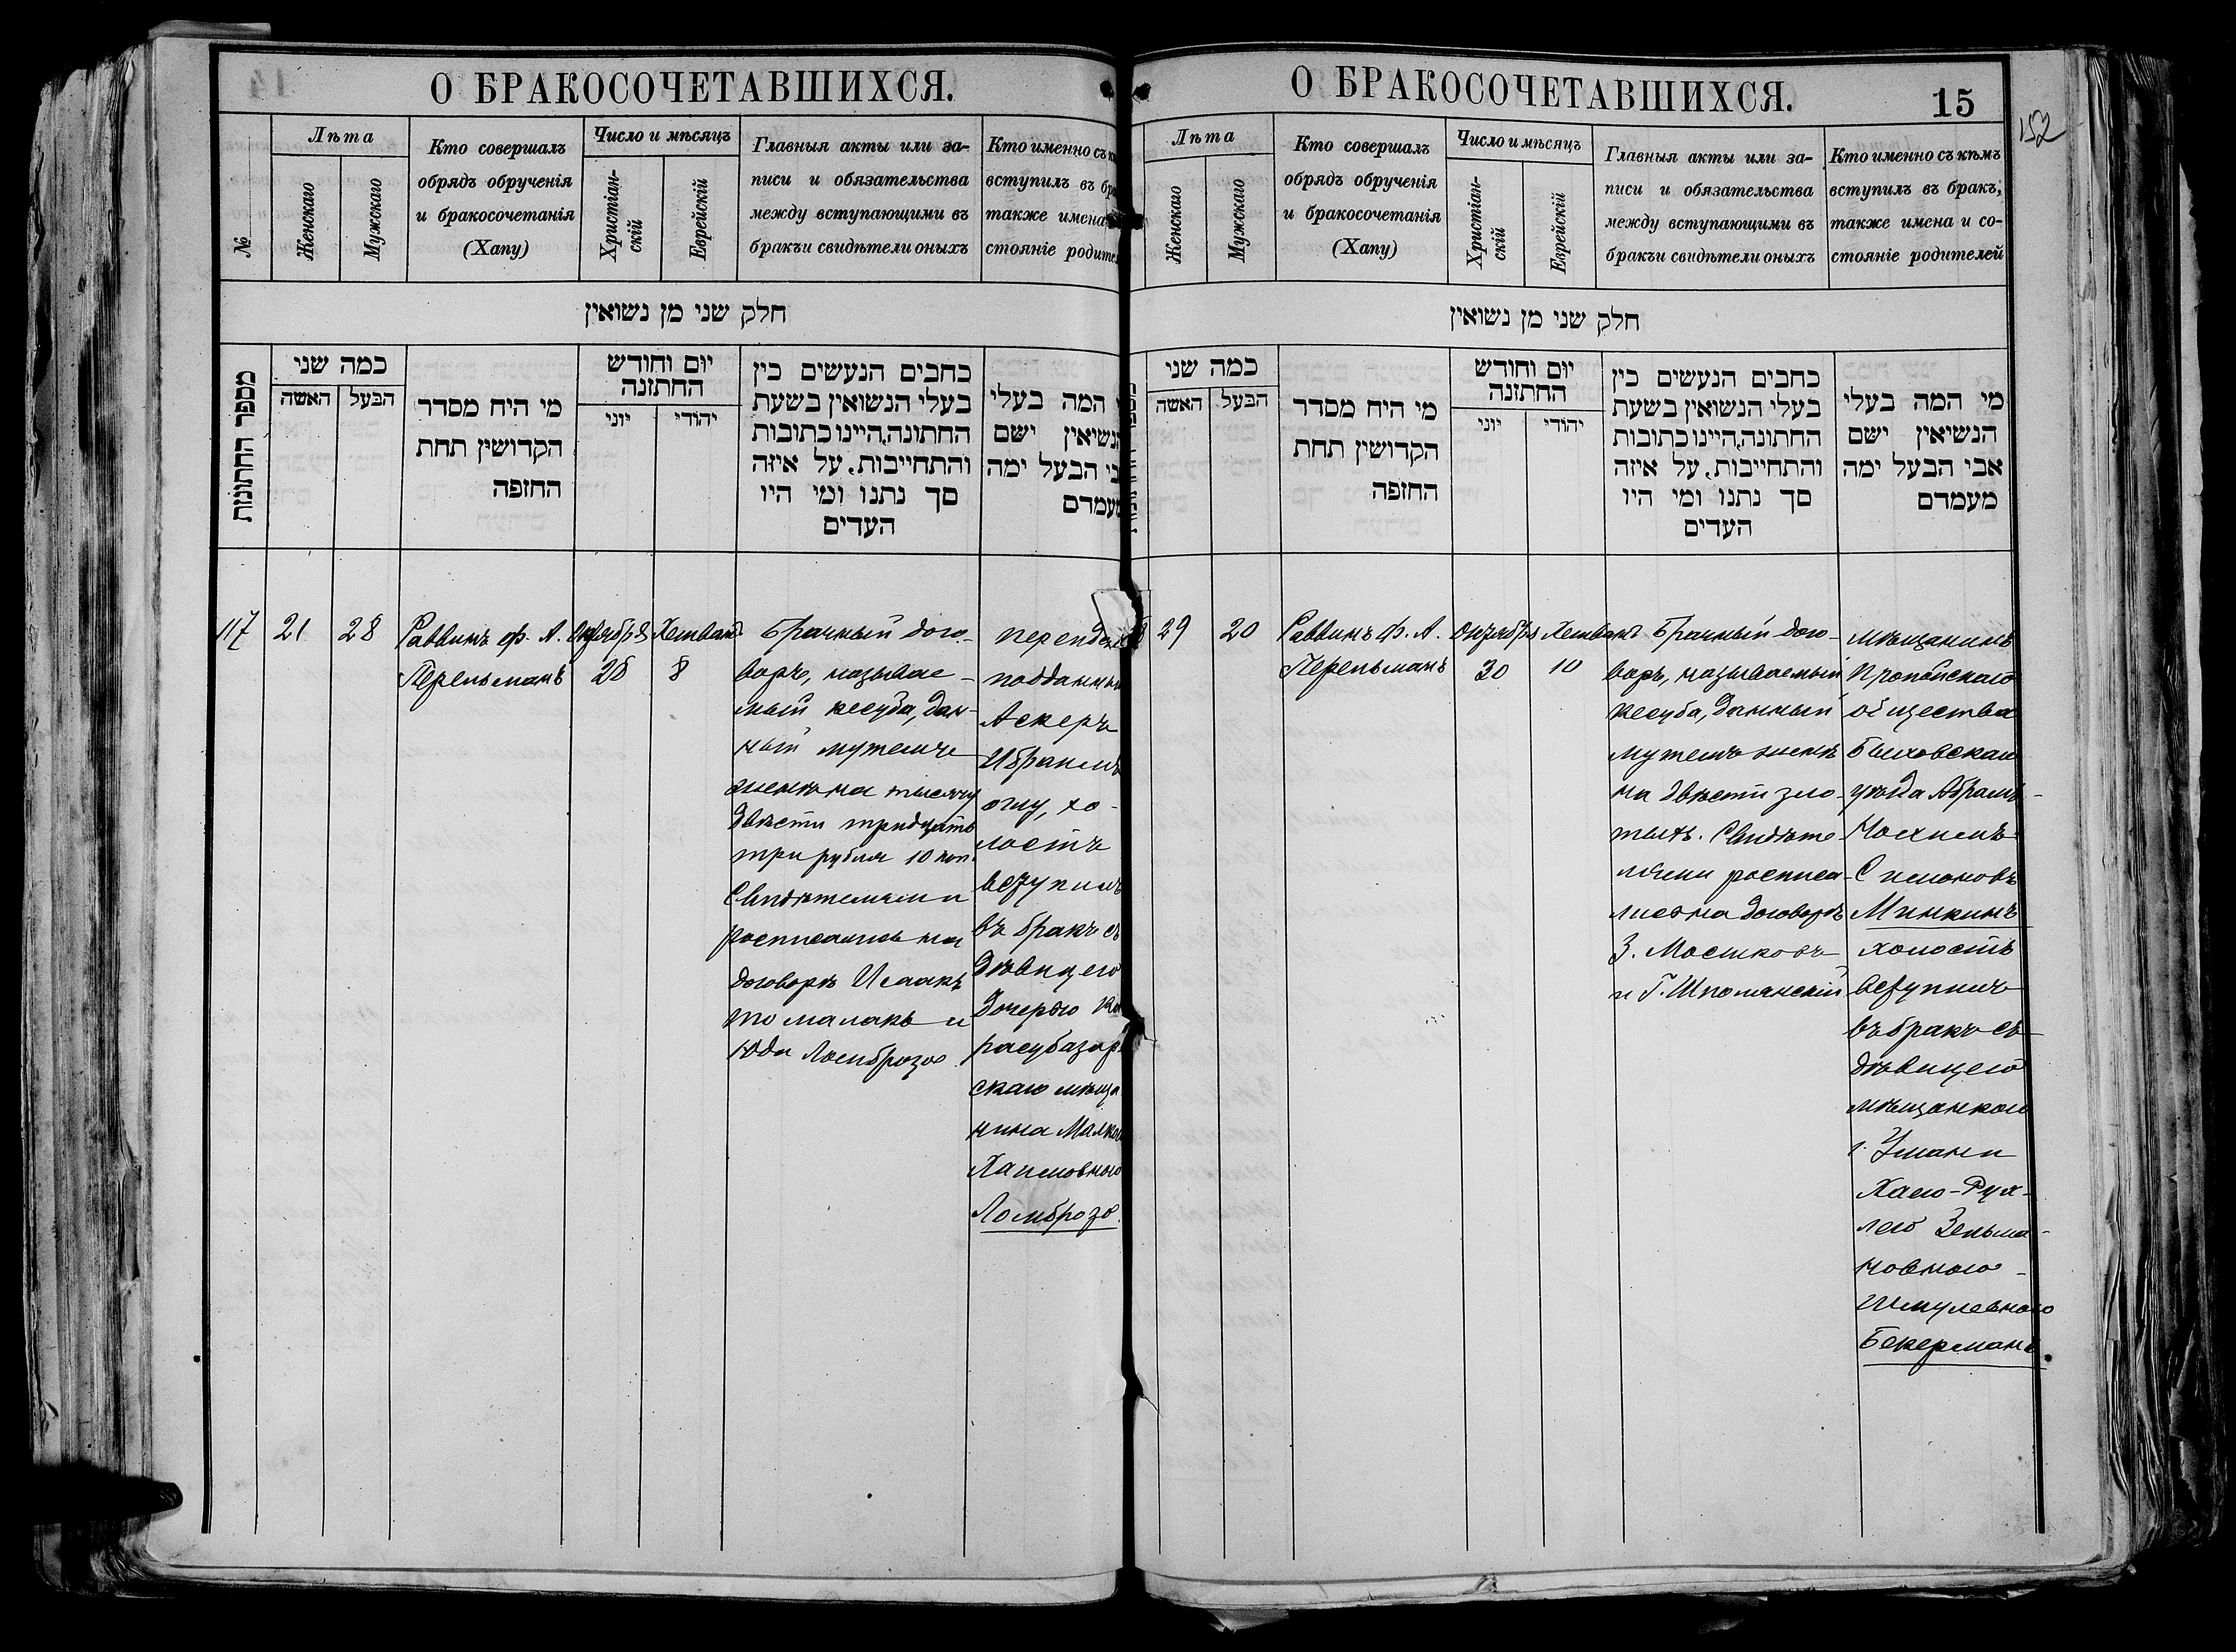 О БРАКОСОЧЕТАВШИХСЯ.
№
Лѣта
Женскаго
Мужскаго
Кто совершалъ
обрядъ обрученія
и бракосочетанія
(Хапу)
Число и мѣсяцъ
Христіан-
скій
Еврейскій
Главныя акты или за-
писи и обязательства
между вступающими въ
бракъи свидѣтели оныхъ
Кто именно съ
вступилъ въ
также имена
стояніе
חלק שני מן נשואין
מספר החתונות
כמה שני
האשה
הבעל
מי היח מסדר
הקדושין תחת
החופה
יום וחודש
החתונה
יוני
יהודי
כחבים הנעשים כין
בעלי הנשואין בשעת
החתונה,היינו כתובות
והתחייבות, על איזה
סך נתנו ומי היו
העדים
המה בעלי
ישם
הבעל ימה
117
21
28
Раввинъ ф. А.
Перельманъ
Октября
28
Хешванъ
8
Брачный дого-
воръ, называе-
мый кесуба, дан-
ный мужемъ
женѣ на тысячу
двѣсти тридцать
три рубля 10 коп.
Свидѣтелями
росписались на
договорѣ Исаакъ
Томалакъ и
Юда Ломброзо
поддан
Аскеръ
Ибрагимъ
оглу, хо-
лостъ
вступилъ
въ бракъ съ
дѣвицею
дочерью Ка-
расубазар-
скаго мѣща
нина Малкою
Хаимовною
Ломброзо.
О БРАКОСОЧЕТАВШИХСЯ.
15
152
Лѣта
Женскаго
Мужскаго
Кто совершалъ
обрядъ обрученія
и бракосочетанія
(Хапу)
Число и мѣсяцъ
Христіан-
скій
Еврейскій
Главныя акты или за-
писи и обязательства
между вступающими въ
бракъи свидѣтели оныхъ
Кто именно съ кѣмъ
вступилъ въ бракъ,
также имена и со-
стояніе родителей
חלק שני מן נשואין
כמה שני
האשה
הבעל
מי היח מסדר
הקדושין תחת
החופה
יום וחודש
החתונה
יוני
יהודי
כחבים הנעשים כין
בעלי הנשואין בשעת
החתונה,היינו כתובות
והתחייבות, על איזה
סך נתנו ומי היו
העדים
מי המה בעלי
הנשיאין ישם
אבי הבעל ימה
מעמדם
29
20
Раввинъ ф. А.
Перельманъ
Октября
30
Хешванъ
10
Брачный дого-
воръ, называемый
кесуба, данный
мужемъ женѣ
на двѣсти зло-
тыхъ. Свидѣте-
лями росписа-
лись на договорѣ
З. Мосшковъ
и Г. Шполянскій
мѣщанинъ
Пропойскаго
общества
Быховскаго
уѣзда Абрамъ-
Нохимъ
Симоновъ
Минкинъ
холостъ
вступилъ
въ бракъ съ
дѣвицею
мѣщанкою
г. Умани
Хаею-Рух-
лею Зельма-
новною-
Шмулевною
Бекерманъ.